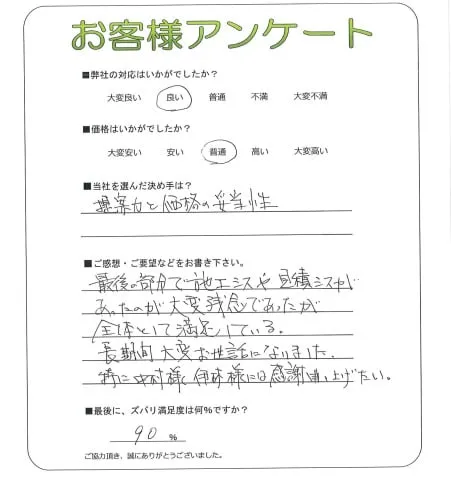 お客様アンケート
■弊社の対応はいかがでしたか？
大変良い 良い 普通 不満 大変不満
■価格はいかがでしたか？
大変安い 安い 普通 高い 大変高い
■当社を選んだ決め手は？
提案力と価格の妥当性
■ご感想・ご要望などをお書き下さい。
最後の部分で施工ミスや見積ミスが
あったのが大変残念であったが
全体として満足している。
長期間大変お世話になりました.
特に中村様、伊藤様には感謝申し上げたい。
■最後に、ズバリ満足度は何％ですか？
90 ％
ご協力頂き、誠にありがとうございました。